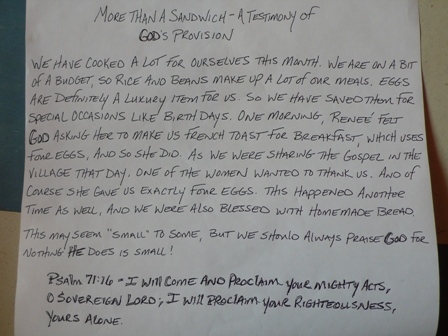 MORE THAN A SANDWICH - A TESTIMONY OF
GOD'S PROVISION
WE HAVE COOKED A LOT FOR OURSELVES THIS MONTH. WE ARE ON A BIT
OF A BUDGET, SO RICE AND BEANS MAKE UP A LOT OF OUR MEALS. EGGS
ARE DEFINITELY A LUXURY ITEM FOR US. SO WE HAVE SAVED THEM FOR
SPECIAL OCCASIONS LIKE BIRTHDAYS. ONE MORNING, RENEÉ FELT
GOD ASKING HER TO MAKE US FRENCH TOAST FOR BREAKFAST, WHICH USES
FOUR EGGS, AND SO SHE DID. AS WE WERE SHARING THE GOSPEL IN THE
VILLAGE THAT DAY. ONE OF THE WOMEN WANTED TO THANK US. AND OF
COURSE SHE GAVE US EXACTLY FOUR EGGS. THIS HAPPENED ANOTHER
TIME AS WELL, AND WE WERE ALSO BLESSED WITH HOMEMADE BREAD.
THIS MAY SEEM "SMALL" TO SOME, BUT WE SHOULD ALWAYS PRAISE GOD FOR
NOTHING HE DOES IS SMALL!
PSALM 71:16 - I WILL COME AND PROCLAIM YOUR MIGHTY ACTS,
O SOVEREIGN LORD; I WILL PROCLAIM YOUR RIGHTEOUSNESS,
YOURS ALONE.